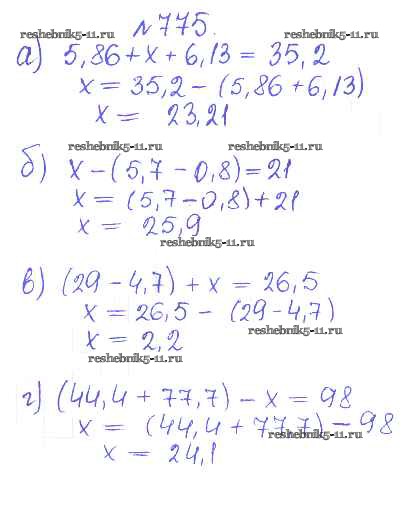 №775.
reshebnik5-11.ru reshebnik5-11.ru
а) 5,86 + x + 6,13 = 35,2
x = 35,2 - (5,86 + 6,13)
x = 23,21
reshebnik5-11.ru reshebnik5-11.ru
б) x - (5,7 - 0,8) = 21
x = (5,7 - 0,8) + 21
x = 25,9
reshebnik5-11.ru
в) (29 - 4,7) + x = 26,5
x = 26,5 - (29 - 4,7)
reshebnik5-11.ru
x = 2,2
reshebnik5-11.ru
г) (44,4 + 77,7) - x = 98
x = (44,4 + 77,7) - 98
reshebnik5-11.ru
x = 24,1